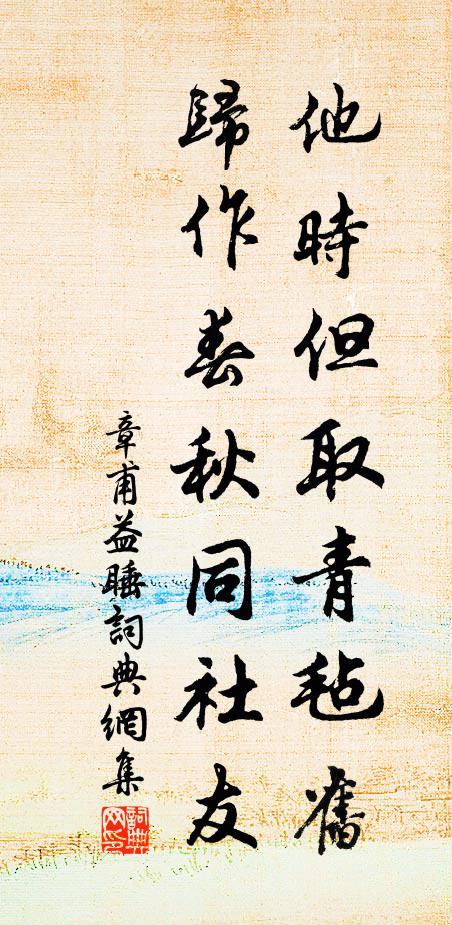 他時但取青毡舊
歸作春秋同社友
章甫益睡詞典網集
詞典网印